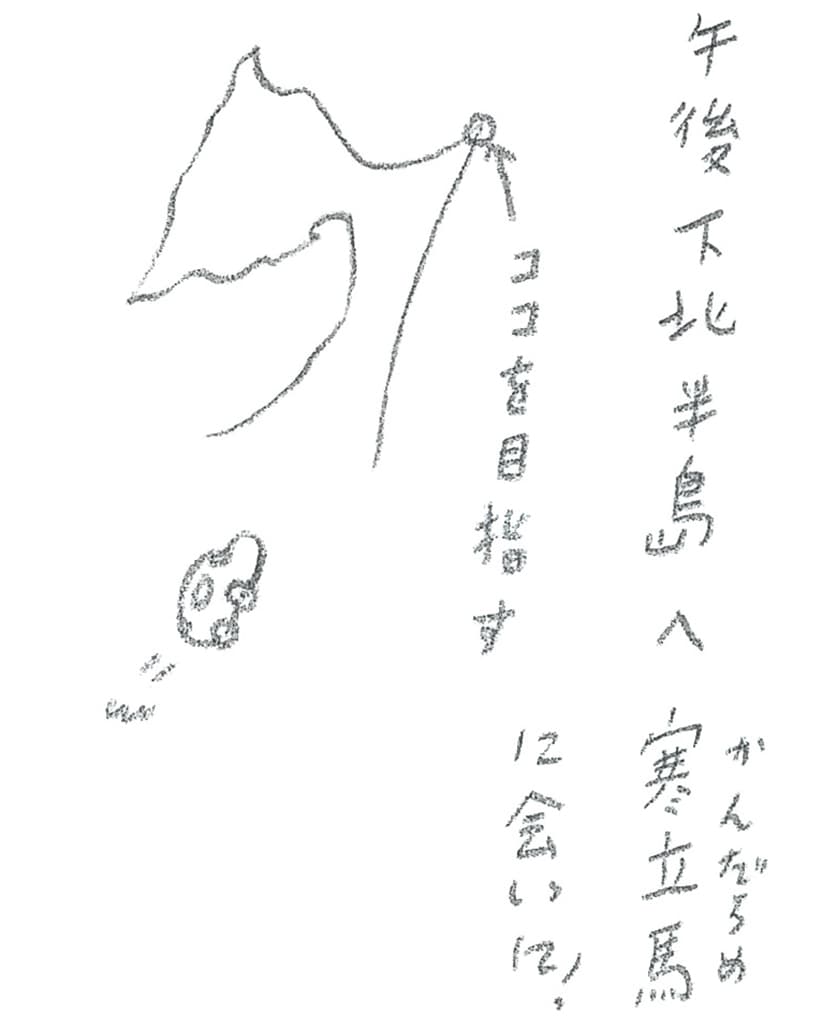 午後下北半島へ寒立馬
かんだちめ
に会いに!
ココを目指す